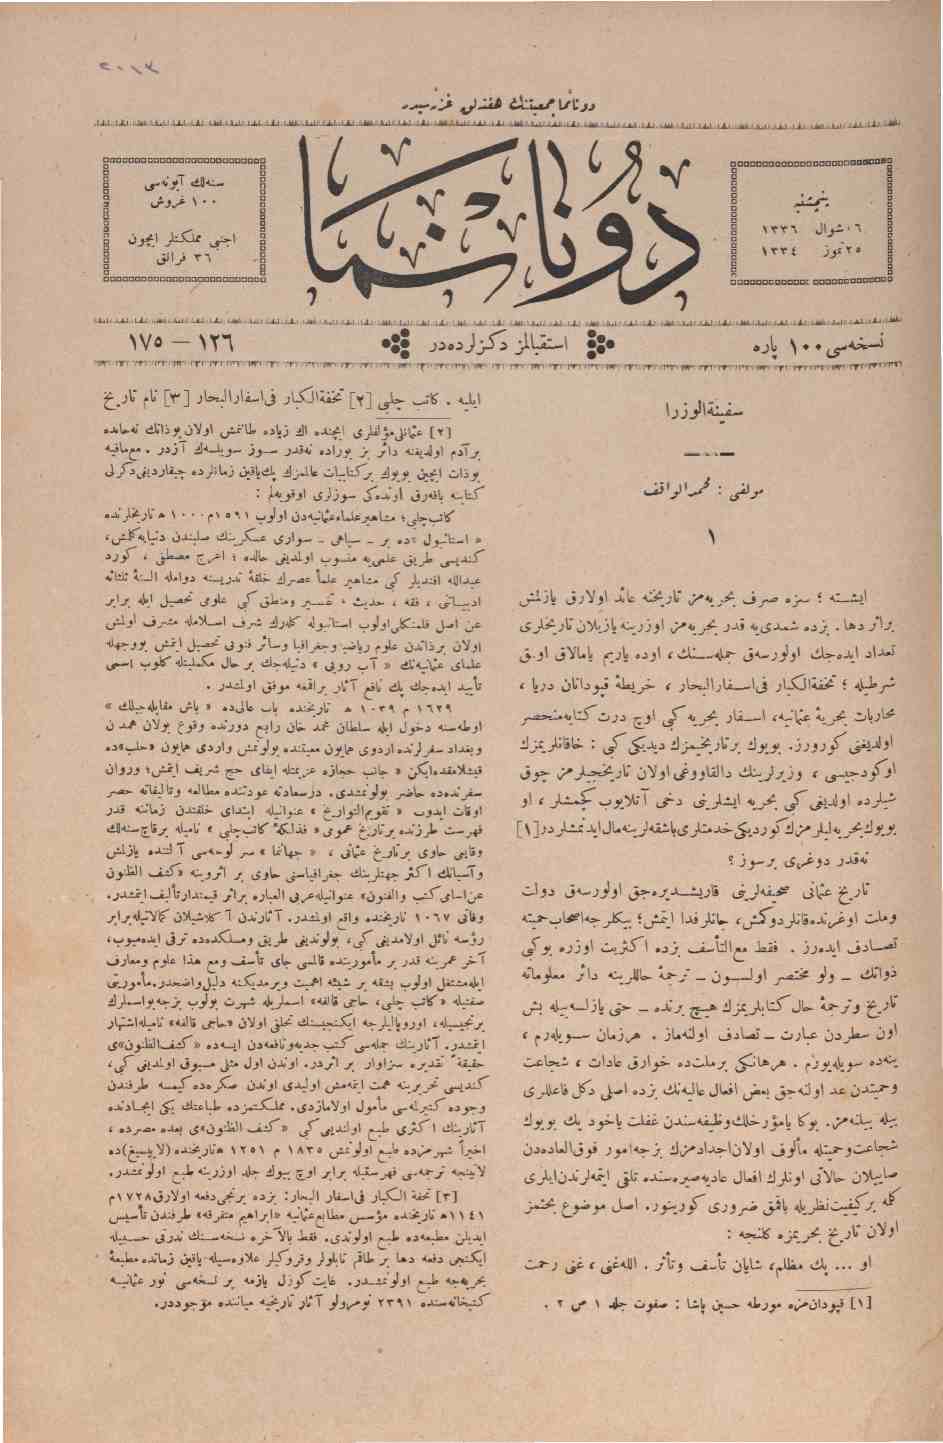 ٢٠١٣
دونانما جمعیتنك هفته‌لق غزته‌سیدر
پنجشنبه
١٦ شوال ١٣٣٦
٢٥ تموز ١٣٣٤
دونانما
سنه‌لك آبونه‌سی
١٠٠ غروش
اجنبی مملكتلر ایچون
٣٦ فرانق
نسخه‌سی ١٠٠ پاره
استقبالمز دكزلرده‌در
١٢٦ — ١٧٥
سفینة‌الوزرا
مولفی : محمدالواقف
١
ایشته ؛ سزه صرف بحریه‌مز تاریخنه عائد اولارق یازلمش
براثر دها . بزده شمدی‌یه قدر بحریه‌مز اوزرینه یازیلان تاریخلری
تعداد ایده‌جك اولورسه‌ق جمله‌سنك ، اوده یاریم یامالاق اولمق
شرطیله ؛ تحفة‌الكبار فی‌اسفارالبحار ، خریطهٔ قپودانان دریا ،
محاربات بحریهٔ عثمانیه، اسفار بحریه كبی اوچ درت كتابه‌منحصر
اولدیغنی كورورز. بویوك برتاریخیمزك دیدیكی كبی : خاقانلریمزك
اوكودجیسی ، وزیرلرینك دالقاووغی اولان تاریخجیلرمز چوق
شیلرده اولدیغی كبی بحریه ایشلرینی دخی آتلایوب كچمشلر ، او
بویوك‌بحریه‌لیلرمزك‌كوردیكی‌خدمتلری‌باشقه‌لرینه‌مال‌ایدنمشلردر[١]
نه‌قدر دوغری برسوز ؟
تاریخ عثمانی صحیفه‌لرینی قاریشدیره‌جق اولورسه‌ق دولت
وملت اوغرنده‌قانلردوكمش، جانلر فدا ایتمش؛ بیكلرجه‌اصحاب‌حمیته
تصادف ایده‌رز . فقط مع‌التأسف بزده اكثریت اوزره بوكبی
ذواتك — ولو مختصر اولسون — ترجمهٔ حاللرینه دائر معلوماته
تاریخ وترجمهٔ حال كتابلریمزك هیچ برنده — حتی یازلسه‌بیله بش
اون سطردن عبارت — تصادف اولنه‌ماز . هرزمان سویله‌رم ،
ینه‌ده سویله‌یورم . هرهانكی برملتده خوارق عادات ، شجاعت
وحمیتدن عد اولنه‌جق بعض افعال عالیه‌نك بزده اصلی دكل فاعللری
بیله بیلنه‌مز. بوكا یامؤرخلك‌وظیفه‌سندن غفلت یاخود پك بویوك
شجاعت‌وحمیتله مألوف اولان‌اجدادمزك بزجه‌امور فوق‌العاده‌دن
صاییلان حالاتی اونلرك افعال عادیه‌صیره‌سنده تلقی ایتمه‌لرندن‌ایلری
كلمه بركیفیت‌نظریله باقمق ضروری كورینور. اصل موضوع بحثمز
اولان تاریخ بحریمزه كلنجه :
او ... پك مظلم، شایان تأسف وتأثر . الله‌غنی ، غنی رحمت
[١] قپودان‌مزه مورطه حسین پاشا : صفوت جلد ١ ص ٢ .
ایلیه . كاتب چلبی [٢] تحفة‌الكبار فی‌اسفارالبحار [٣] نام تاریخ
[٢] عثمانلی‌مؤلفلری ایچنده اك زیاده طانمش اولان‌بوذاتك نه‌جامده
برآدم اولدیغنه دائر بز بوراده نه‌قدر سوز سویلسه‌ك آزدر . مع‌مافیه
بوذات ایچین بویوك بركتابیات عالمزك پك‌یاقین زمانلرده چیقاردیغی‌دكرلی
كتابنه باقه‌رق اونده‌كی سوزلری اوقویه‌لم :
كاتب‌چلبی؛ مشاهیرعلماءعثمانیه‌دن اولوب ١٥٩١م ١٠٠٠ ه تاریخلرنده
« استانبول »ده بر — سپاهی — سواری عسكرینك صلبندن دنیایه‌كلمش،
كندیسی طریق علمی‌یه منسوب اولمدیغی حالده ؛ اعرج مصطفی ، كورد
عبدالله افندیلر كبی مشاهیر علمأ عصرك حلقهٔ تدریسنه دوامله السنهٔ ثلثاثه
ادبیاتی ، فقه ، حدیث ، تفسیر ومنطق كبی علومی تحصیل ایله برابر
عن اصل فلمنكلی‌اولوب استانبوله كله‌رك شرف اسلامله مشرف اولمش
اولان برذاتدن علوم ریاضیه‌وجغرافیا وسائر فنونی تحصیل ایتمش بووجهله
علمای عثمانیه‌نك « آب رویی » دنیله‌جك بر حال مكملیتله كلوب اسمی
تأیید ایده‌جك پك نافع آثار براقمغه موفق اولمشدر .
١٦٢٩ م ١٠٣٩ ه تاریخنده باب عالی‌ده « باش مقابله‌جیلك »
اوطه‌سنه دخول ایله سلطان محمد خان رابع دورنده وقوع بولان همدن
وبغداد سفرلرنده اردوی همایون معیتنده بولونمش واردی همایون «حلب»ده
قیشلامقده‌ایكن « جانب حجازه عزیمتله ایفای حج شریف ایتمش؛ وروان
سفرنده‌ده حاضر بولونمشدی. درسعادته عودتنده مطالعه وتألیفاته حصر
اوقات ایدوب « تقویم‌التواریخ » عنوانیله ابتدای خلقتدن زماننه قدر
فهرست طرزنده برتاریخ عمومی « فذلكهٔ كاتب‌چلبی » نامیله برقاچ‌سنه‌لك
وقایعی حاوی برتاریخ عثمانی ، « جهانما » سرلوحه‌سی آلتنده یازلمش
وآسیانك اكثر جهتلرینك جغرافیاسنی حاوی بر اثروینه «كشف الظنون
عن‌اسامی كتب والفنون» عنوانیله‌عربی العباره براثر قیمتدارتألیف‌ایتمشدر.
وفاتی ١٠٦٧ تاریخنده واقع اولمشدر. آثارندن آكلاشیلان كمالاتیله‌برابر
رؤسه نائل اولامدیغی كبی، بولوندیغی طریق ومسلكده‌ده ترقی ایده‌میوب،
آخر عمرینه قدر بر مأموریتده قالمسی جای تأسف ومع هذا علوم ومعارف
ایله‌مشتغل اولوب بشقه بر شیئه اهمیت ویرمدیكنه دلیل‌واضحدر.مأموریتی
صفتیله «كاتب چلبی، حاجی قالفه» اسملریله شهرت بولوب بزجه‌بواسملرك
برنجیسیله، اوروپالیلرجه ایكنجیسنك تحلتی اولان «حاجی قالفه» نامیله‌اشتهار
ایتمشدر. آثارینك جمله‌سی كتب جدیه‌ونافعه‌دن ایسه‌ده «كشف‌الظنون»ی
حقیقةً تقدیره سزاوار بر اثردر. اوندن اول مثلی مسبوق اولمدیغی كبی،
كندیسی تحریرینه همت ایتمه‌مش اولیدی اوندن صكره‌ده كیمسه طرفندن
وجوده كتیرلمه‌سی مأمول اولامازدی. مملكتمزده طباعتك یكی ایجادنده
آثارینك اكثری طبع اولندیی كبی «كشف الظنون»ی بعده مصرده ،
اخیراً شهرمزده طبع اولونمش ١٨٣٥ م ١٢٥١ ه‌تاریخنده (لایپسیغ)ده
لاتینجه ترجمه‌سی فهرستیله برابر اوچ بیوك جلد اوزرینه طبع اولونمشدر.
[٣] تحفة الكبار فی‌اسفار البحار: بزده برنجی‌دفعه اولارق١٧٢٨م
١١٤١ه تاریخنده مؤسس مطابع‌عثمانیه «ابراهیم متفرقه» طرفندن تأسیس
ایدیلن مطبعه‌ده طبع اولوندی. فقط بالآخره نسخه‌سنك ندرتی حسبیله
ایكنجی دفعه دها بر طاقم تابلولر وقروكیلر علاوه‌سیله‌یاقین زمانده مطبعهٔ
بحریه‌جه طبع اولونمشدر. غایت كوزل یازمه بر نسخه‌سی نور عثمانیه
كتبخانه‌سنده ٢٣٩١ نومرولو آثار تاریخیه میاننده موجوددر.